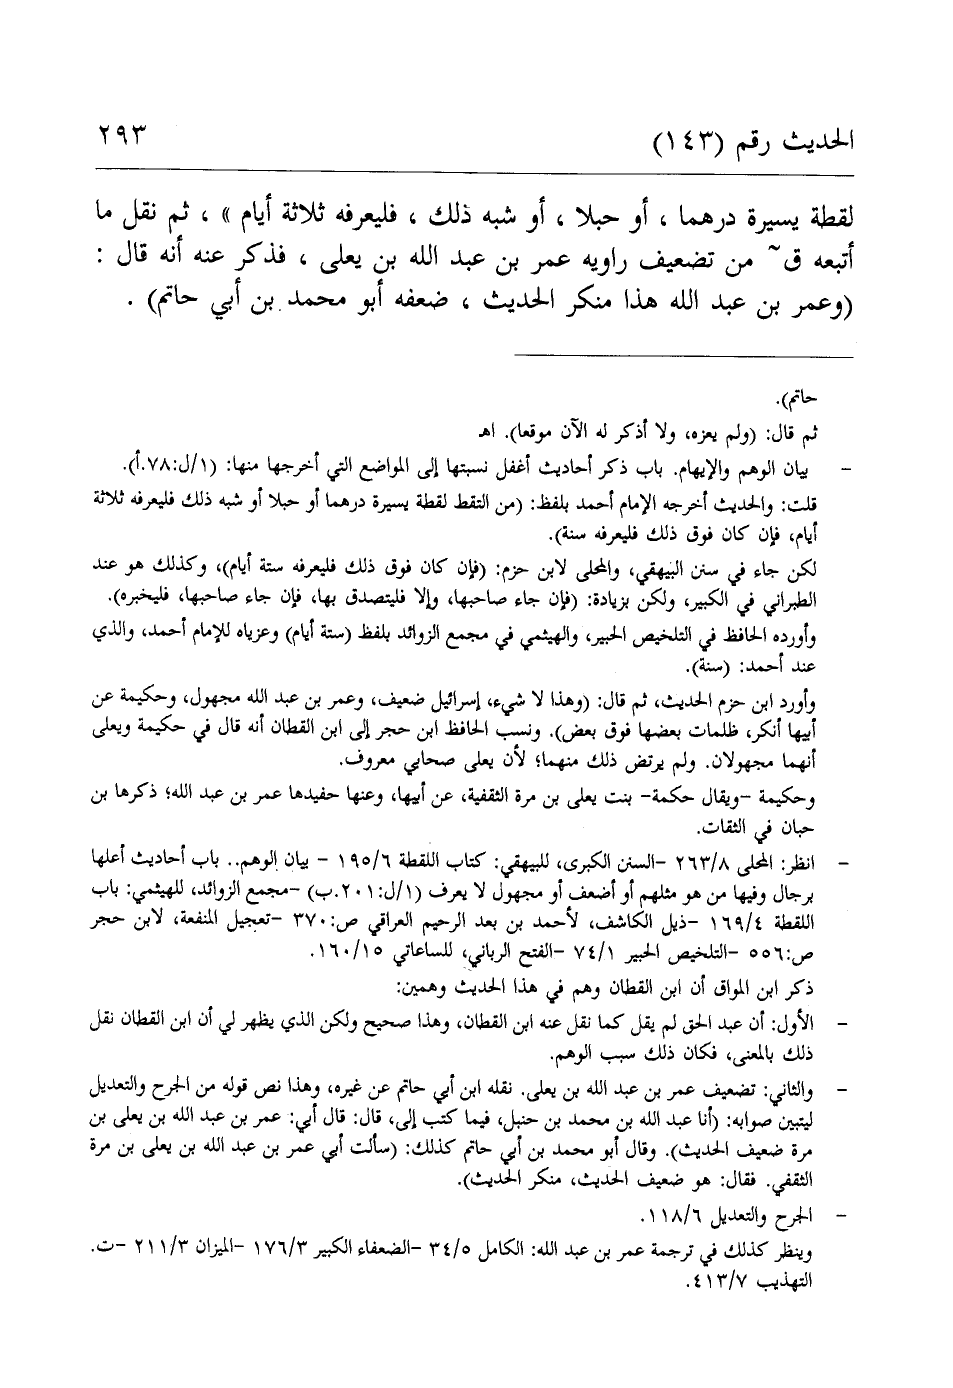 الحديث رقم (١٤٣)
٢٩٣
لقطة يسيرة درهما ، أو حبلا ، أو شبه ذلك ، فليعرفه ثلاثة أيام » ، ثم نقل ما
أتبعه ق~ من تضعيف راويه عمر بن عبد الله بن يعلى ، فذكر عنه أنه قال :
(وعمر بن عبد الله هذا منكر الحديث ، ضعفه أبو محمد بن أبي حاتم) .
حاتم).
ثم قال: (ولم يعزه، ولا أذكر له الآن موقعا). اهـ
– بيان الوهم والإيهام. باب ذكر أحاديث أغفل نسبتها إلى المواضع التي أخرجها منها: (١/ل:٧٨.أ).
قلت: والحديث أخرجه الإمام أحمد بلفظ: (من التقط لقطة يسيرة درهما أو حبلا أو شبه ذلك فليعرفه ثلاثة
أيام، فإن كان فوق ذلك فليعرفه سنة).
لكن جاء في سنن البيهقي، والمحلى لابن حزم: (فإن كان فوق ذلك فليعرفه ستة أيام)، وكذلك هو عند
الطبراني في الكبير، ولكن بزيادة: (فإن جاء صاحبها، وإلا فليتصدق بها، فإن جاء صاحبها، فليخبره).
وأورده الحافظ في التلخيص الحبير، والهيثمي في مجمع الزوائد بلفظ (ستة أيام) وعزياه للإمام أحمد، والذي
عند أحمد: (سنة).
وأورد ابن حزم الحديث، ثم قال: (وهذا لا شيء، إسرائيل ضعيف، وعمر بن عبد الله مجهول، وحكيمة عن
أبيها أنكر، ظلمات بعضها فوق بعض). ونسب الحافظ ابن حجر إلى ابن القطان أنه قال في حكيمة ويعلى
أنهما مجهولان. ولم يرتض ذلك منهما؛ لأن يعلى صحابي معروف.
وحكيمة –ويقال حكمة– بنت يعلى بن مرة الثقفية، عن أبيها، وعنها حفيدها عمر بن عبد الله؛ ذكرها بن
حبان في الثقات.
– انظر: المحلى ٢٦٣/٨ –السنن الكبرى، للبيهقي: كتاب اللقطة ١٩٥/٦ – بيان الوهم.. باب أحاديث أعلها
برجال وفيها من هو مثلهم أو أضعف أو مجهول لا يعرف (١/ل:٢٠١.ب) –مجمع الزوائد، للهيثمي: باب
اللقطة ١٦٩/٤ –ذيل الكاشف، لأحمد بن بعد الرحيم العراقي ص:٣٧٠ –تعجيل المنفعة، لابن حجر
ص:٥٥٦ –التلخيص الحبير ٧٤/١ –الفتح الرباني، للساعاتي ١٦٠/١٥.
ذكر ابن المواق أن ابن القطان وهم في هذا الحديث وهمين:
– الأول: أن عبد الحق لم يقل كما نقل عنه ابن القطان، وهذا صحيح ولكن الذي يظهر لي أن ابن القطان نقل
ذلك بالمعنى، فكان ذلك سبب الوهم.
– والثاني: تضعيف عمر بن عبد الله بن يعلى. نقله ابن أبي حاتم عن غيره، وهذا نص قوله من الجرح والتعديل
ليتبين صوابه: (أنا عبد الله بن محمد بن حنبل، فيما كتب إلى، قال: قال أبي: عمر بن عبد الله بن يعلى بن
مرة ضعيف الحديث). وقال أبو محمد بن أبي حاتم كذلك: (سألت أبي عمر بن عبد الله بن يعلى بن مرة
الثقفي. فقال: هو ضعيف الحديث، منكر الحديث).
– الجرح والتعديل ١١٨/٦.
وينظر كذلك في ترجمة عمر بن عبد الله: الكامل ٣٤/٥ –الضعفاء الكبير ١٧٦/٣ –الميزان ٢١١/٣ –ت.
التهذيب ٤١٣/٧.